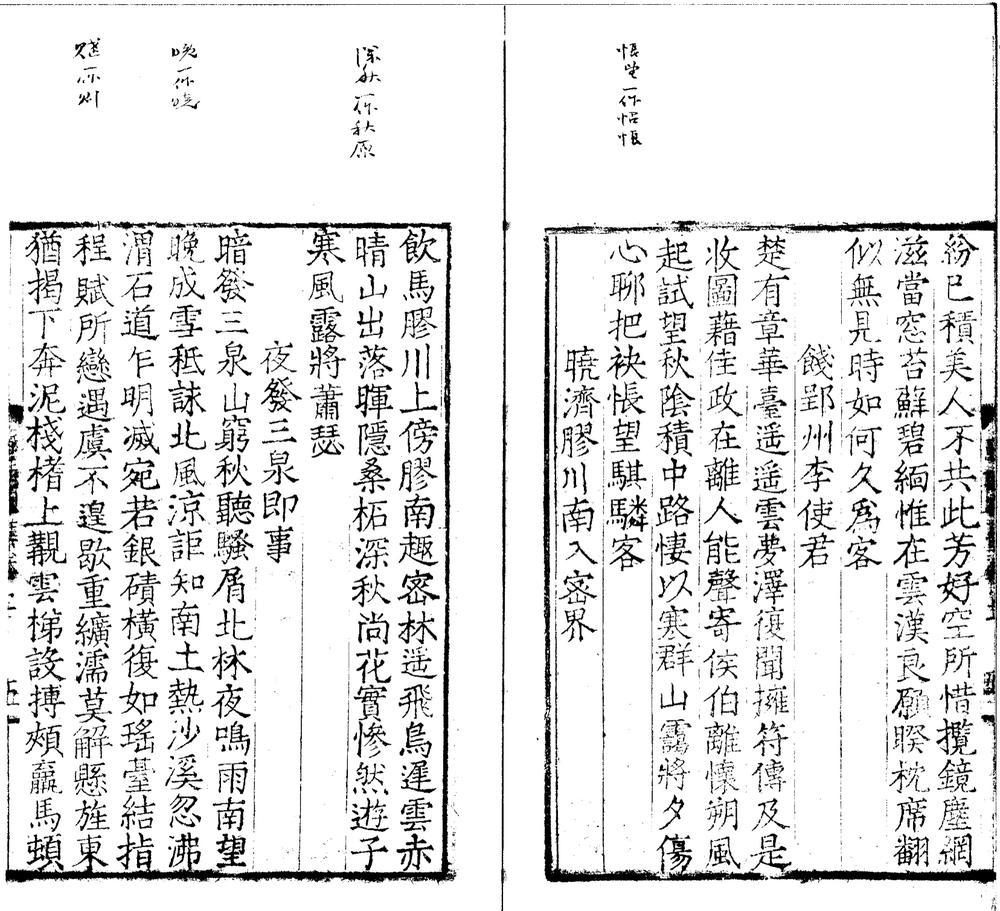 紛已積美人不共此芳好空所惜攬鏡塵網
滋當窓苔鮮碧緬惟在雲漢良願睽枕席翻
似無見時如何久爲客
餞郢州李使君
楚有章華臺遥遥雲夢澤復聞擁符傳及是
收圖藉佳政在離人能聲寄侯伯離懷朔風
起試望秋陰積中路悽以寒群山靄將夕傷
心聊把袂悵望騏驎客
曉濟膠川南入密界
飲馬膠川上傍膠南趣密林遥飛鳥遲雲赤
晴山出落暉隱桑柘深秋尚花實慘然遊子
寒風露將蕭瑟
夜發三泉即事
暗發三泉山窮秋聽騷屑北林夜鳴雨南望
晚成雪秪詠北風涼詎知南土熱沙溪忽沸
渭石道乍明滅宛若銀磧横復如瑤臺結指
程賦所戀遇虞不遑歇重纊濡莫解懸旌東
猶揭下奔泥棧榰上覯雲梯設摶頰羸馬頓
悵望一作怊悵
深秋一作秋原
晚一作曉